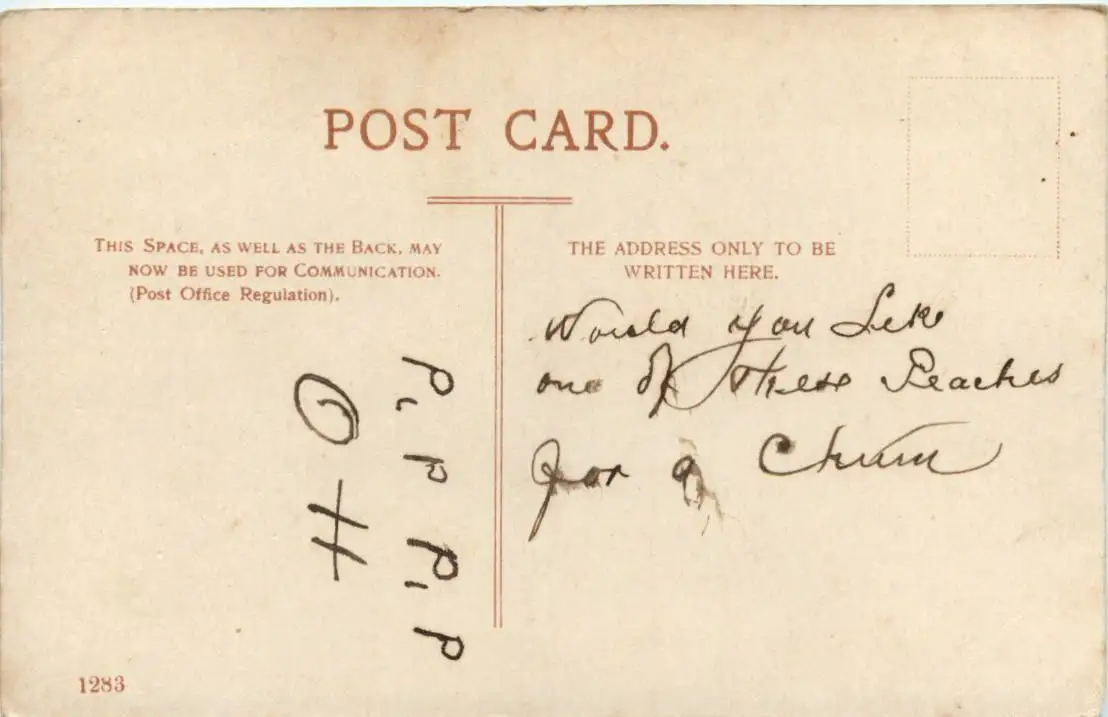 POST CARD.
THIS SPACE, AS WELL AS THE BACK, MAY
NOW BE USED FOR COMMUNICATION.
(Post Office Regulation).
THE ADDRESS ONLY TO BE
WRITTEN HERE.
Would you Like
one of These Peaches
for a Chum
P. P P. P
O H
1283